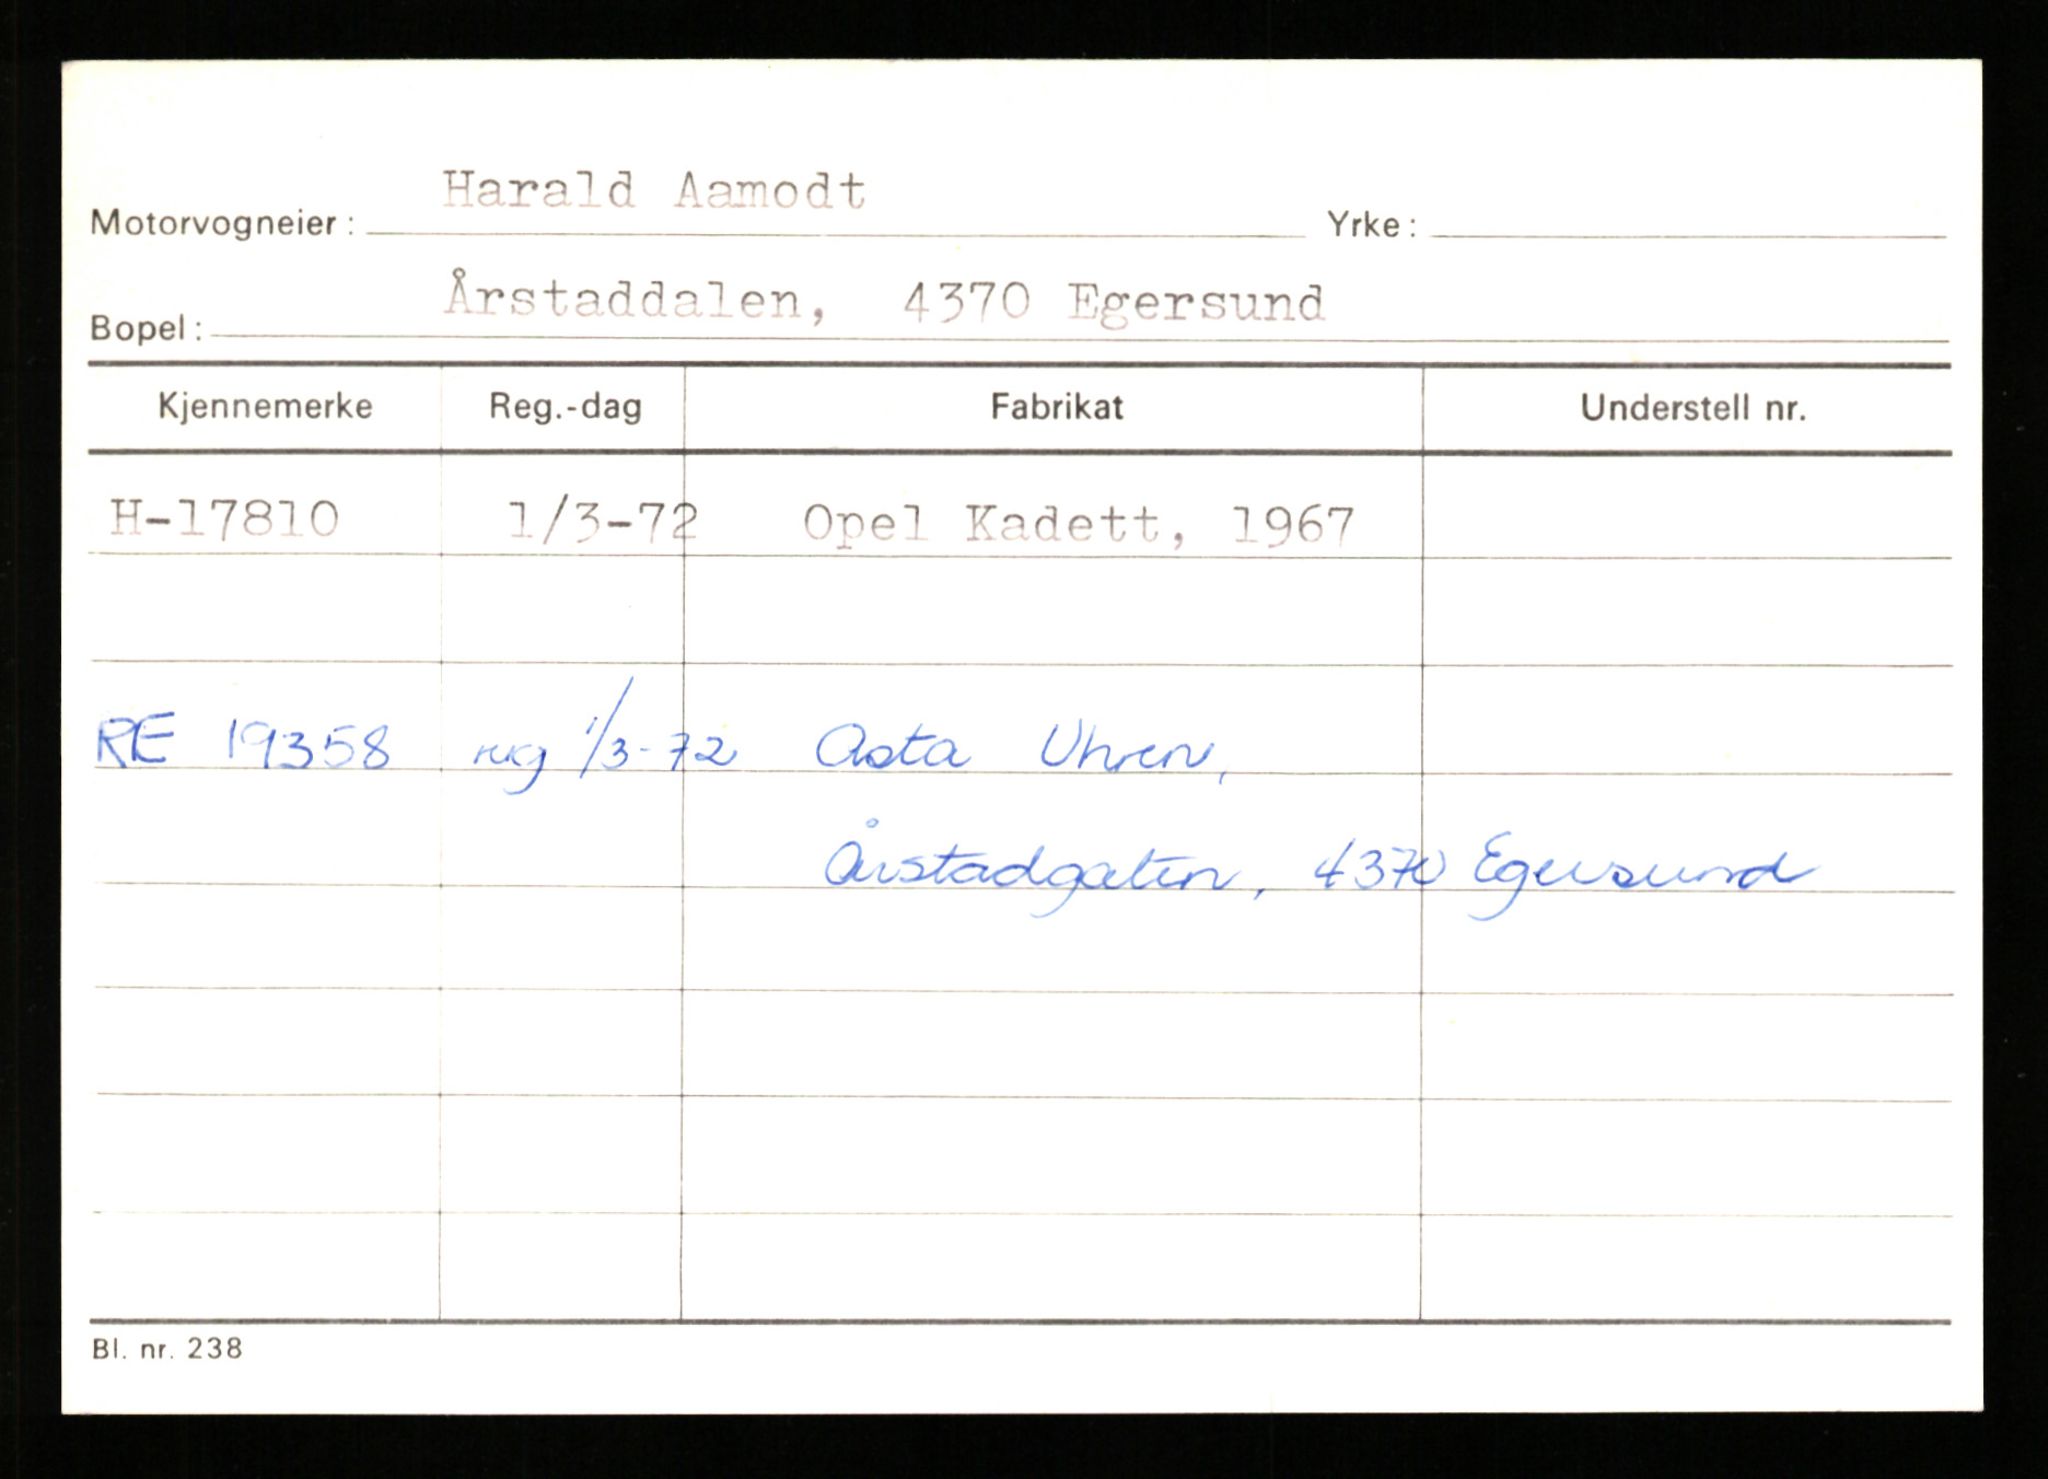 Harald Aamodt
Motorvogneier: Yrke:
Årstaddalen, 4370 Egersund
Bopel:
Kjennemerke Reg.-dag Fabrikat Understell nr.
H-17810 1/3-72 Opel Kadett, 1967
RE 19358 reg 1/3-72 Asta Uhren,
Årstadgaten, 4370 Egersund
Bl. nr. 238